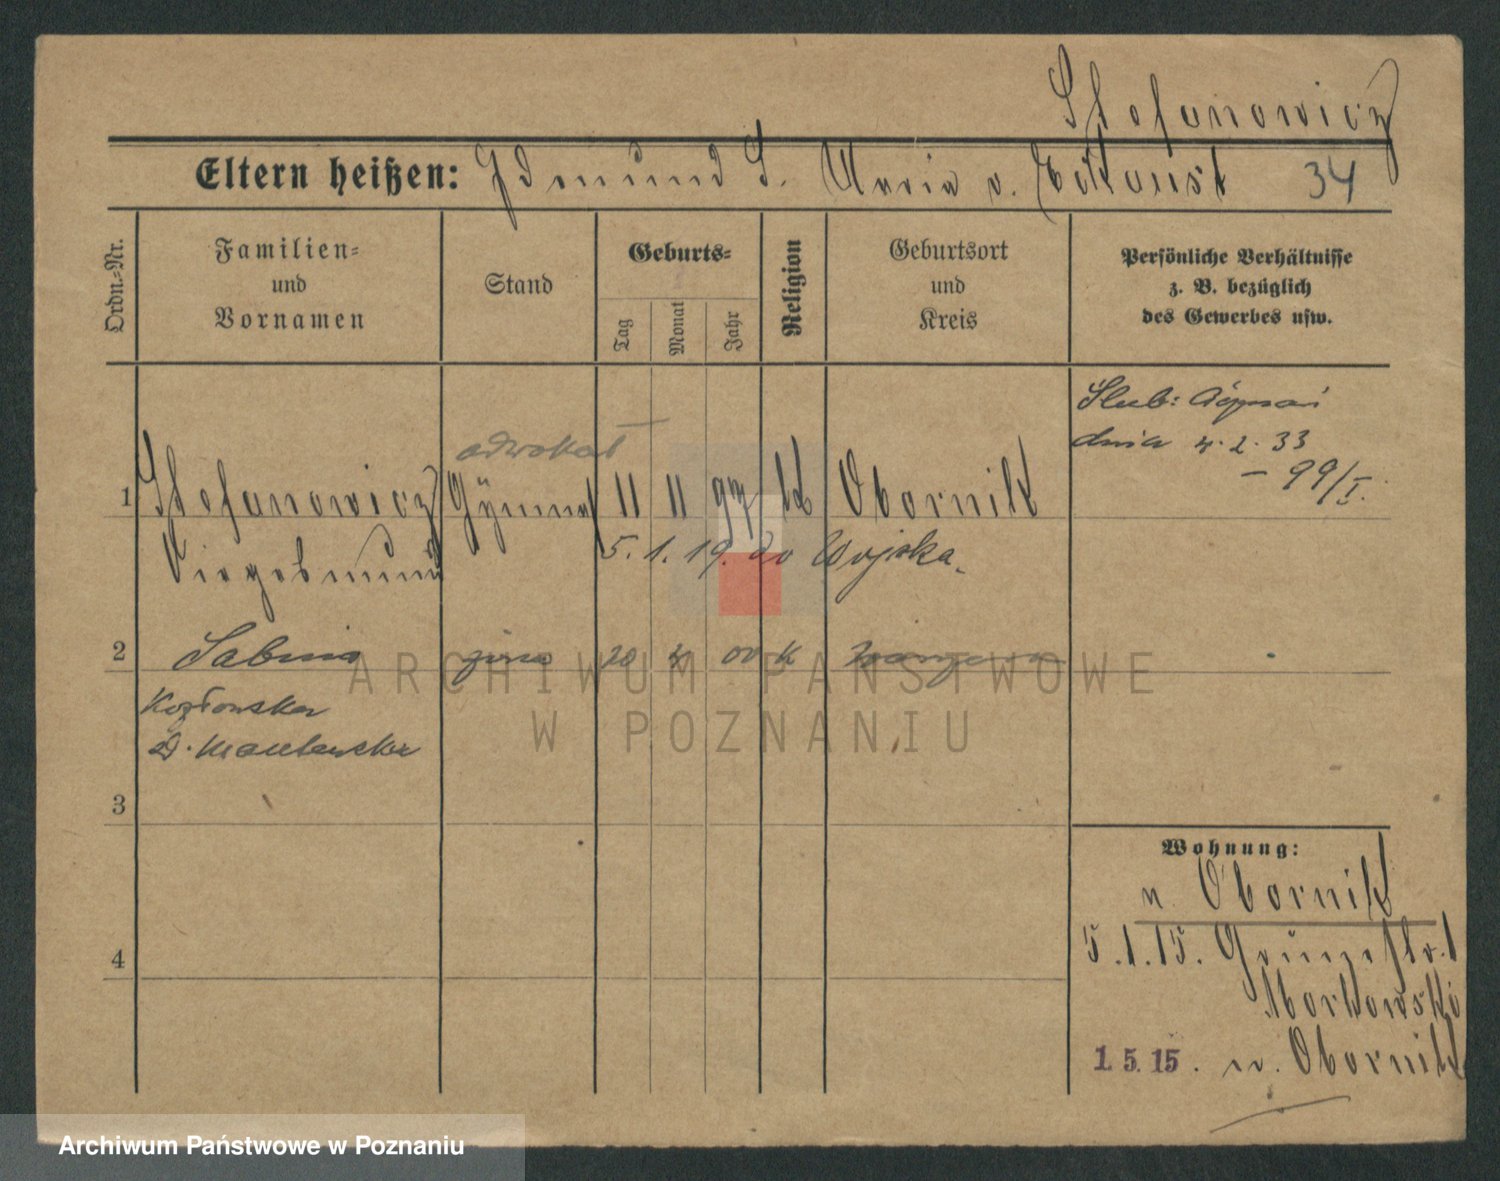 Stefanowicz
Eltern heißen: Edmund S. Maria v. 34
Ordn.=Nr.
Familien=
und
Vornamen
Stand
Geburts=
Tag
Monat
Jahr
Religion
Geburtsort
und
Kreis
Persönliche Verhältnisse
z. B. bezüglich
des Gewerbes usw.
Ślub:
dnia 4. 2. 33
– 99/I.
adwokat
1 Stefanowicz Gymnas 11 11 97 k Obornik
Siegesmund 5. 1. 19. do Wojska.
2 Sabina żona 20 4 00 k
Kozłowska
3
4
Wohnung:
n. Obornik
5.1.15. Grünestr. 1
Morkowski
1. 5. 15. n. Obornik
ARCHIWUM PAŃSTWOWE
W POZNANIU
Archiwum Państwowe w Poznaniu